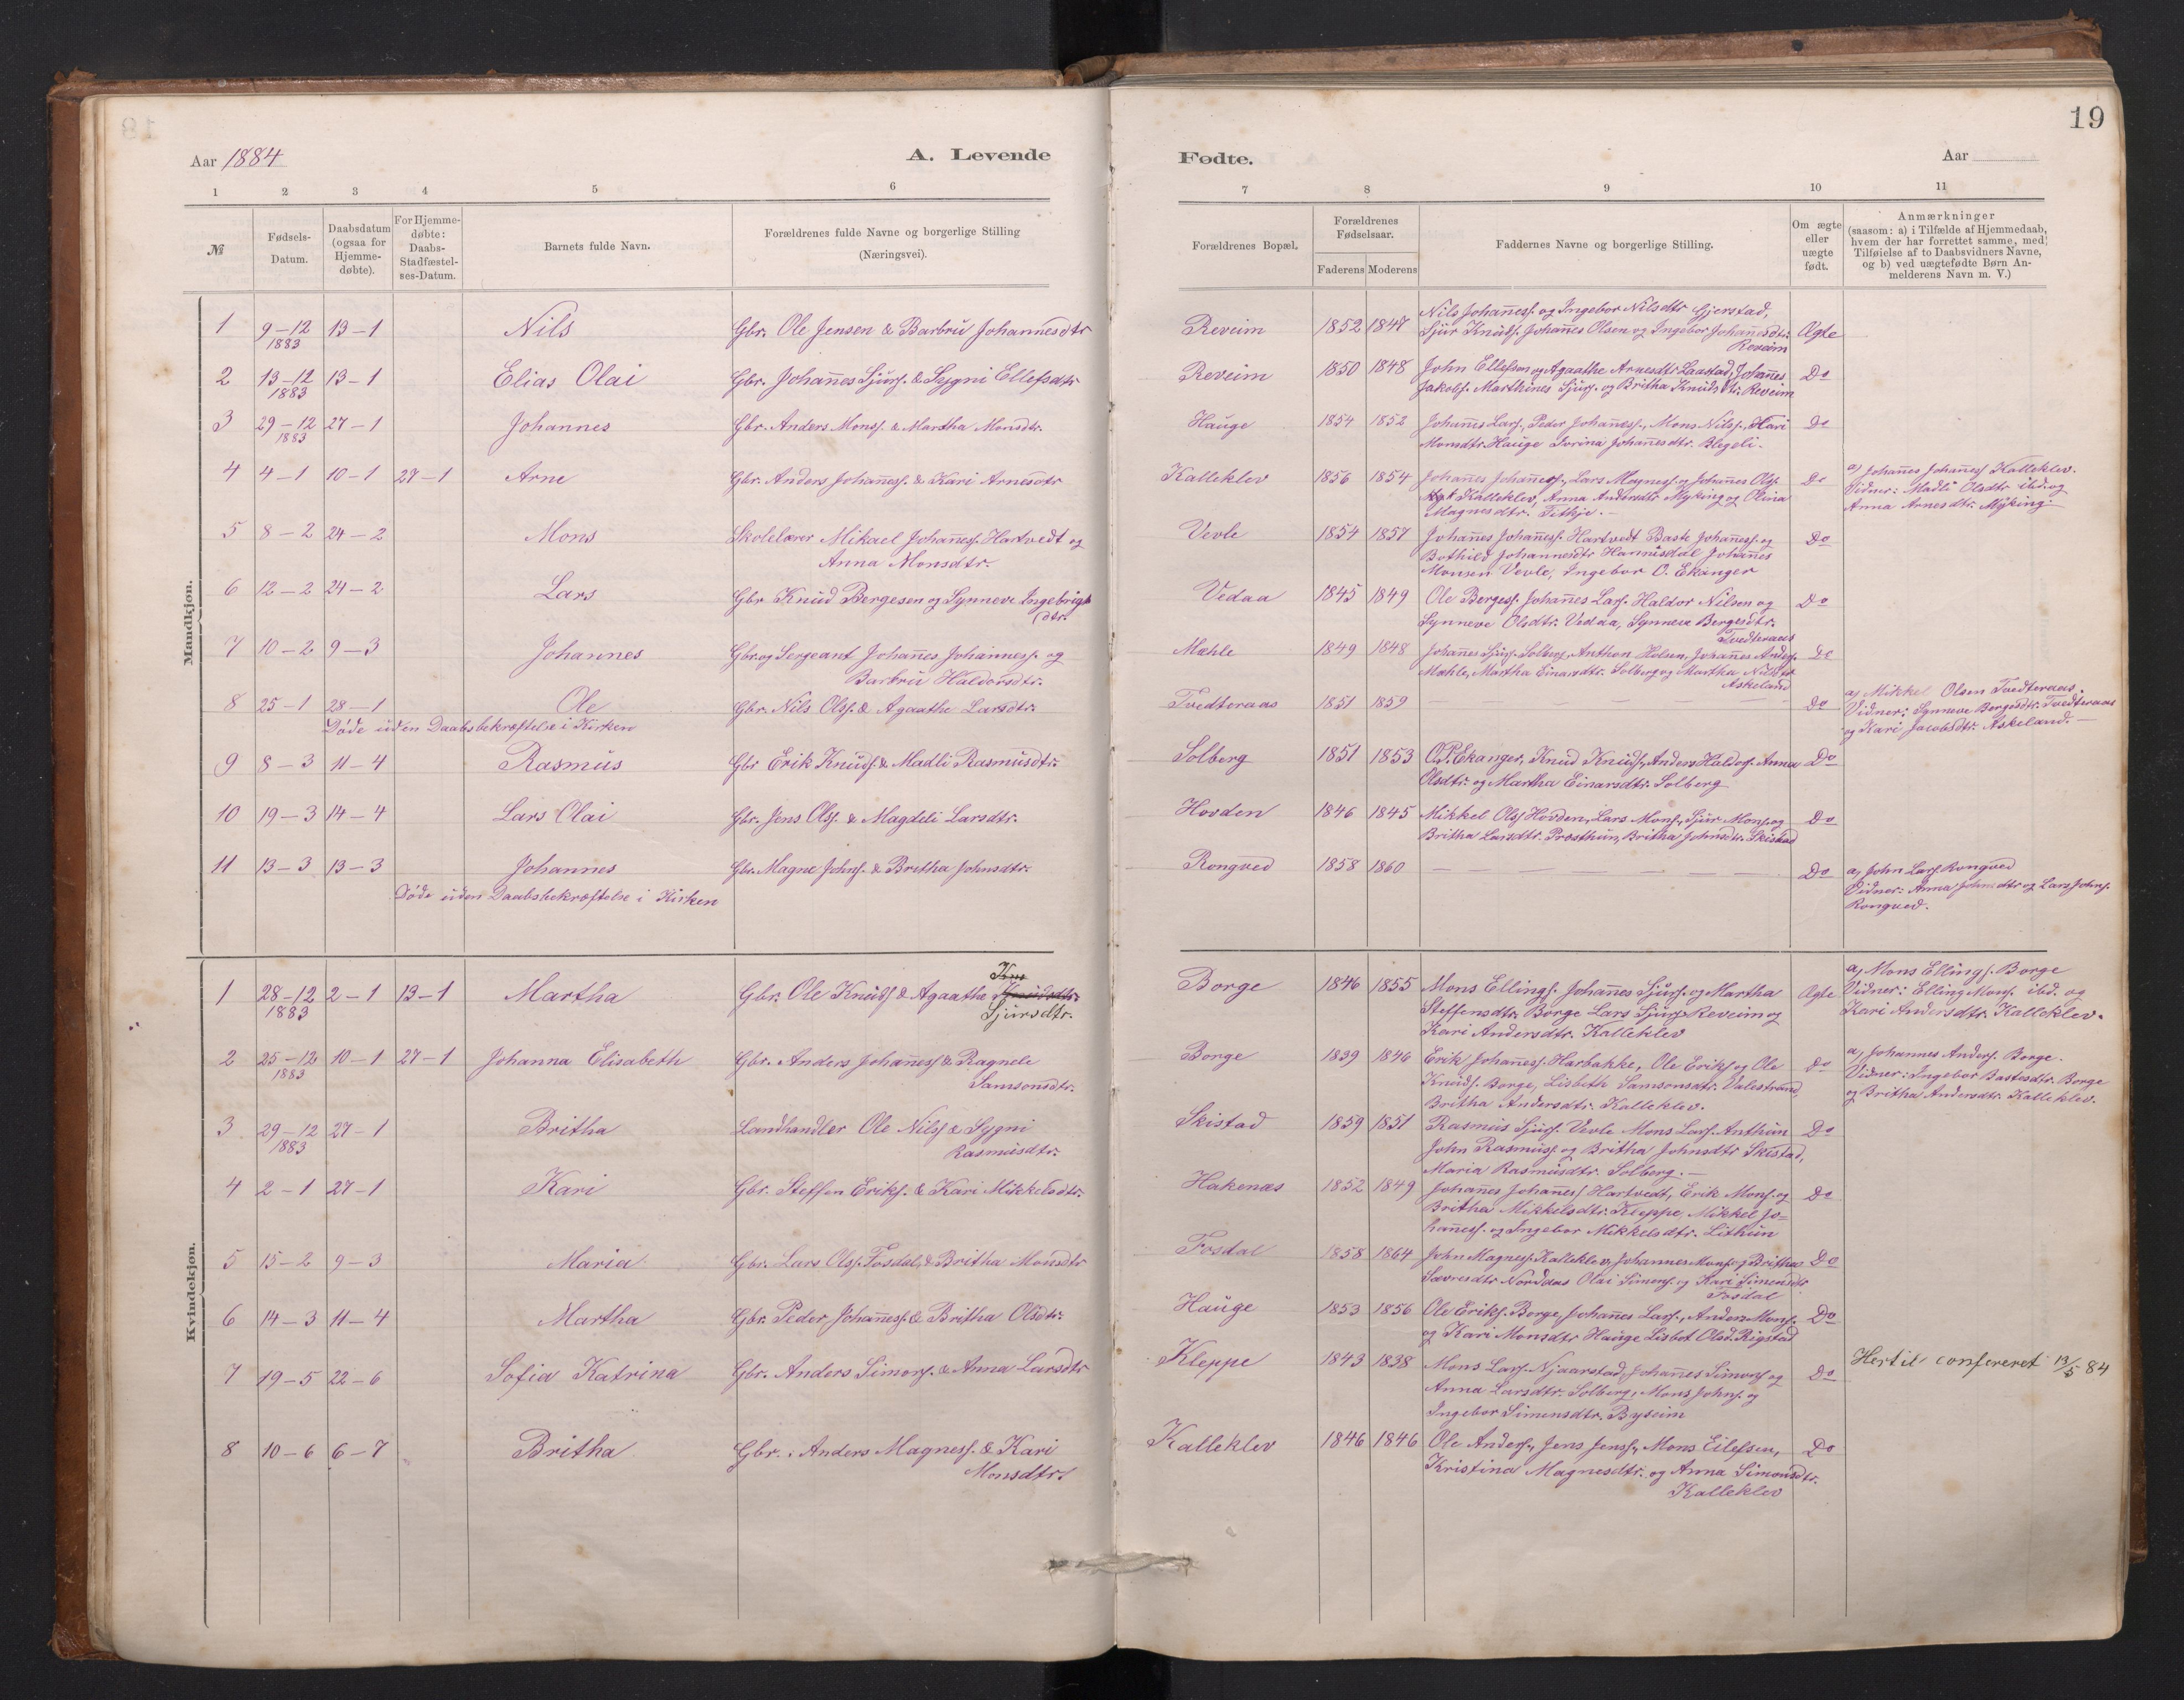 19
Aar 1884
A. Levende
Fødte.
Aar
1 2 3 4 5 6 7 8 9 10 11
№
Fødsels-Datum.
Daabsdatum (ogsaa for Hjemme-døbte).
For Hjemme-døbte: Daabs-Stadfæstel-ses-Datum.
Barnets fulde Navn.
Forældrenes fulde Navne og borgerlige Stilling (Næringsvei).
Forældrenes Bopæl.
Forældrenes Fødselsaar.
Faderens Moderens
Faddernes Navne og borgerlige Stilling.
Om ægte eller uægte født.
Anmærkninger (saasom: a) i Tilfælde af Hjemmedaab, hvem der har forrettet samme, med Tilføielse af to Daabsvidners Navne, og b) ved uægtefødte Børn An-melderens Navn m. V.)
Mandkjøn.
1 9-12 1883 13-1 Nils Gbr. Ole Jensen & Barbru Johannesdtr Reveim 1852 1847 Nils Johañess. og Ingebor Nilsdtr Gjerstad,
Sjur Knuds. Johañes Olsen og Ingebor Johañesdtr. Ægte
Reveim
2 13-12 1883 13-1 Elias Olai Gbr. Johañes Sjurs. & Sygni Ellefsdtr Reveim 1850 1848 John Ellefsen og Agaathe Arnesdtr Laastad, Johañes Do
Jakobs. Marthines Sjurs. og Britha Knudsdtr. Reveim
3 29-12 1883 27-1 Johannes Gbr. Anders Monss. & Martha Monsdtr. Hauge 1854 1852 Johañes Lars., Peder Johañess., Mons Nilss., Kari Do
Monsdtr. Hauge Torina Johañesdtr. Blegeli.
4 4-1 10-1 27-1 Arne Gbr. Anders Johañess. & Kari Arnesdtr Kalleklev 1856 1854 Johañes Johañess., Lars Magness. og Johañes Ols. Do a) Johañes Johañess Kalleklev.
Kalleklev, Anna Andersdtr Myking og Olina Vidner: Madli Olsdtr ibd. og
Magnesdtr. Titkje. Anna Arnesdtr. Myking
5 8-2 24-2 Mons Skolelærer Mikael Johañess. Hartvedt og Vevle 1854 1857 Johañes Johañess. Hartvedt Baste Johañess. og Do
Anna Monsdtr. Bothild Johannesdtr Hannisdal Johañes
Monsen Vevle, Ingebor O. Ekanger
6 12-2 24-2 Lars Gbr Knud Bergesen og Synneve Ingebrigtsdtr. Vedaa 1845 1849 Ole Bergess. Johañes Lars. Haldor Nilsen og Do
Synneve Olsdtr. Vedaa, Synneva Bergesdtr.
Tvedteraas
7 10-2 9-3 Johannes Gbr. og Sergeant Johañes Johañness. og Mæhle 1849 1848 Johañes Sjurs. Solberg, Anthon Helsen, Johañes Anders. Do
Barbru Haldorsdtr. Mæhle, Martha Einarsdtr. Solberg og Martha Nilsdtr
Askeland
8 25-1 28-1 Ole Gbr. Nils Olss. & Agaathe Larsdtr. Tvedteraas 1851 1859 Do a, Mikkel Olsen Tvedteraas.
Døde uden Daabsbekræftelse i Kirken Vidner: Synneve Bergesdtr. Tvedteraas
og Kari Jacobsdtr. Askeland.
9 8-3 11-4 Rasmus Gbr Erik Knuds. & Madli Rasmusdtr. Solberg 1851 1853 O.P. Ekanger, Knud Knuds., Anders Haldors. Anna Do
Olsdtr. og Martha Einarsdtr. Solberg
10 19-3 14-4 Lars Olai Gbr. Jens Olss. & Magdeli Larsdtr. Hovden 1846 1845 Mikkel Olss Hovden, Lars Mons., Sjur Mons. og Do
Britha Larsdtr. Præsthun, Britha Johnsdtr. Skistad
11 13-3 13-3 Johannes Gbr. Magne Johns. & Britha Johnsdtr. Rongved 1858 1860 Do a, John Lars. Rongved
Døde uden Daabsbekræftelse i Kirken Vidner: Anna Johnsdtr og Lars Johns.
Rongved.
Kvindekjøn.
1 28-12 1883 2-1 13-1 Martha Gbr. Ole Knuds & Agaathe Sjursdtr. Borge 1846 1855 Mons Ellings. Johañes Sjurs. og Martha Ægte a, Mons Ellings. Borge
Steffensdtr. Borge Lars Sjurs. Reveim og Vidner: Elling Mons. ibd. og
Kari Andersdtr. Kalleklev Kari Andersdtr. Kalleklev.
2 25-12 1883 10-1 27-1 Johanna Elisabeth Gbr. Anders Johañess & Ragnele Borge 1839 1846 Erik Johañess. Harbakke, Ole Eriks. og Ole Do a, Johannes Anders. Borge.
Samsonsdtr. Knuds. Borge, Lisbeth Samsonsdtr. Valestrand, Vidner: Ingebor Bastesdtr. Borge
Britha Andersdtr. Kalleklev. og Britha Andersdtr. Kalleklev.
3 29-12 1883 27-1 Britha Landhandler Ole Nilss & Sygni Skistad 1859 1851 Rasmus Sjurs. Vevle Mons Lars. Anthun Do
Rasmusdtr. John Rasmuss. og Britha Johnsdtr Skistad,
Maria Rasmusdtr. Solberg.
4 2-1 27-1 Kari Gbr. Steffen Eriks. & Kari Mikkelsdtr. Hakenæs 1852 1849 Johañes Johañess Hartvedt, Erik Mons. og Do
Britha Mikkelsdtr. Kleppe, Mikkel Jo=
hañess. og Ingebor Mikkelsdtr. Lithun
5 15-2 9-3 Maria Gbr. Lars Olss. Fosdal, & Britha Monsdtr Fosdal 1858 1864 John Magness. Kalleklev, Johannes Mons. og Britha Do
Sævresdtr Norddas Olai Simons. og Kari Simonsdtr
Fosdal
6 14-3 11-4 Martha Gbr. Peder Johañess. & Britha Olsdtr. Hauge 1853 1856 Ole Eriks. Borge, Johañes Lars., Anders Mons. Do
og Kari Monsdtr Hauge Lisbet Olsd. Rigstad
7 19-5 22-6 Sofia Katrina Gbr. Anders Simons. & Anna Larsdtr Kleppe 1843 1838 Mons Lars. Njaarstad, Johañes Simons og Do Hertil confereret 13/5 84
Anna Larsdtr. Solberg, Mons Johns. og
Ingebor Simensdtr. Byseim
8 10-6 6-7 Britha Gbr. Anders Magness. & Kari Kalleklev 1846 1846 Ole Anders., Jens Jenss., Mons Eilefsen, Do
Monsdtr. Kristina Magnesdtr. og Anna Simonsdtr.
Kalleklev